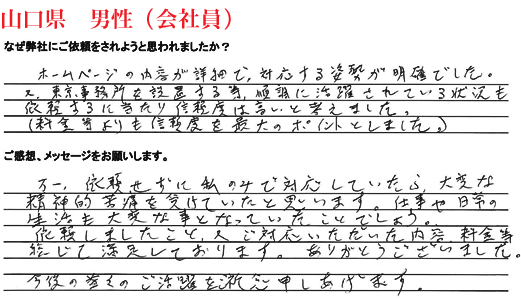 山口県　男性（会社員）
なぜ弊社にご依頼をされようと思われましたか？
ホームページの内容が詳細で、対応する姿勢が明確でした。
又、東京事務所を設置する等、順調に活躍されている状況も
依頼するに当たり信頼度は高いと考えました。
（料金等よりも信頼度を最大のポイントとしました。）
ご感想、メッセージをお願いします。
万一、依頼せずに私のみで対応していたら、大変な
精神的苦痛を受けていたと思います。仕事や日常の
生活も大変な事となっていたことでしょう。
依頼しましたこと、又ご対応いただいた内容、料金等
総じて満足しております。ありがとうございました。
今後の益々のご活躍を祈念申しあげます。